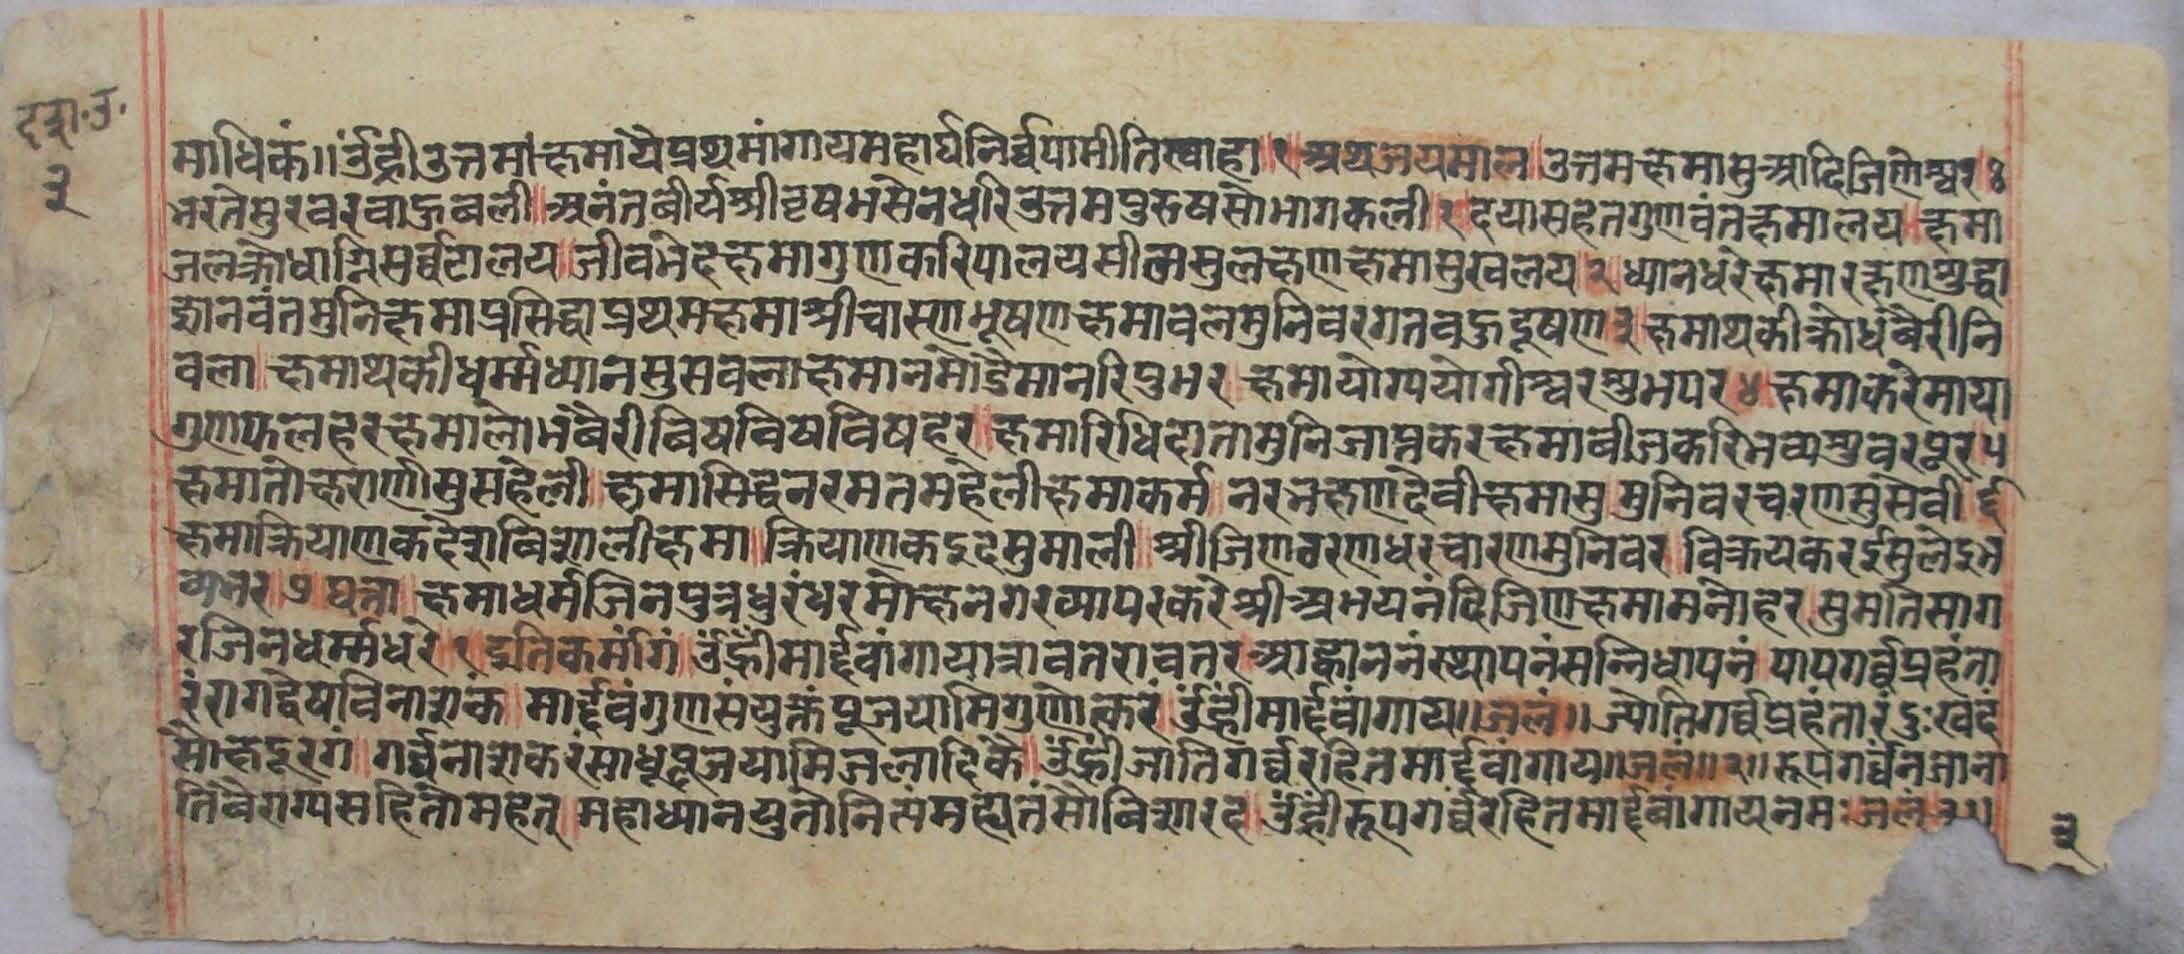 दश.उ.
३
माधिकं॥ ॐह्रीउत्तमक्षमायैप्रथमांगायमहार्घनिर्व्वपामीतिस्वाहा॥१ अथजयमाल उत्तमक्षमासुआदिजिणेश्वर॥
भरतेसुरवरबाहुबली॥अनंतबीर्यश्रीवृषभसेनधरि उत्तमपुरुषसोभागकली॥१ दयासहेतगुणवंतक्षमालय॥क्षमा
जलक्रोधाग्निसुर्व्वटालय॥जीवभेदक्षमागुणकरिपालय सीलसुलक्षणक्षमासुखलय॥२ ध्यानधरेक्षमारक्षणशुद्धा
ज्ञानवंतमुनिक्षमाप्रसिद्धा प्रथमक्षमाश्रीचारणभूषण क्षमाबलमुनिवरगतबहुदूषण॥३ क्षमाथकीक्रोधबैरीनि
बला॥ क्षमाथकीधर्म्मध्यानसुसबला क्षमानमोडैमानरिपुभर॥ क्षमायोग्ययोगीश्वरशुभपर॥४ क्षमाकरेमाया
गुणफलहर क्षमालोभबैरीबियविषविषहर॥क्षमारिधिदातामुनिजाप्नकर क्षमाबीजकरिभव्यसुवरपूर॥५
क्षमातोक्षराणीसुसहेली॥ क्षमासिद्धेनरमतमहेली क्षमाकर्म॥नरभक्षणदेवी क्षमासु॥मुनिवरचरणसुसेवी॥६
क्षमाक्रियाणकदेशबिशाली क्षमा॥क्रियाणकदुदसुमाली॥ श्रीजिणवरणधरचारणमुनिवर॥विक्रयकरईसुलेइभ
व्यभर॥७ घत्ता॥ क्षमाधर्मजिनपुत्रधुरंधर मोक्षनगरव्यापरकरे श्रीअभयनंदिजिणक्षमामनोहर॥सुमतिसाग
रजिनधर्म्मधरे॥१ इतिक्षमांगं॥ ॐह्रींमार्द्दवांगायात्रावतरावतर॥आह्वाननंस्थापनंसन्निधापनं॥पापगर्व्वप्रहंता
रंरागद्वेषविनाशकं॥मार्द्दवंगुणसंयुक्तंपूजयामिगुणोत्करं॥ॐह्रींमार्द्दवांगाय॥जलं॥ ज्योतिगर्व्वप्रहंतारंदुःखदं
सोक्षदूरगं॥गर्व्वनाशकरंसाधूपूजयामिजलादिकै॥ॐह्रीजातिगर्व्वरहितमार्द्दवांगाय॥जलं॥२॥ रूपगर्व्वनजाना
तिबैराग्यसहितोमहेत्॥महाध्यानयुतोनित्यंमह्येतंसोबिशारद॥ॐह्रींरूपगर्व्वरहितमार्द्दवांगायनमः॥जलं॥३॥
३